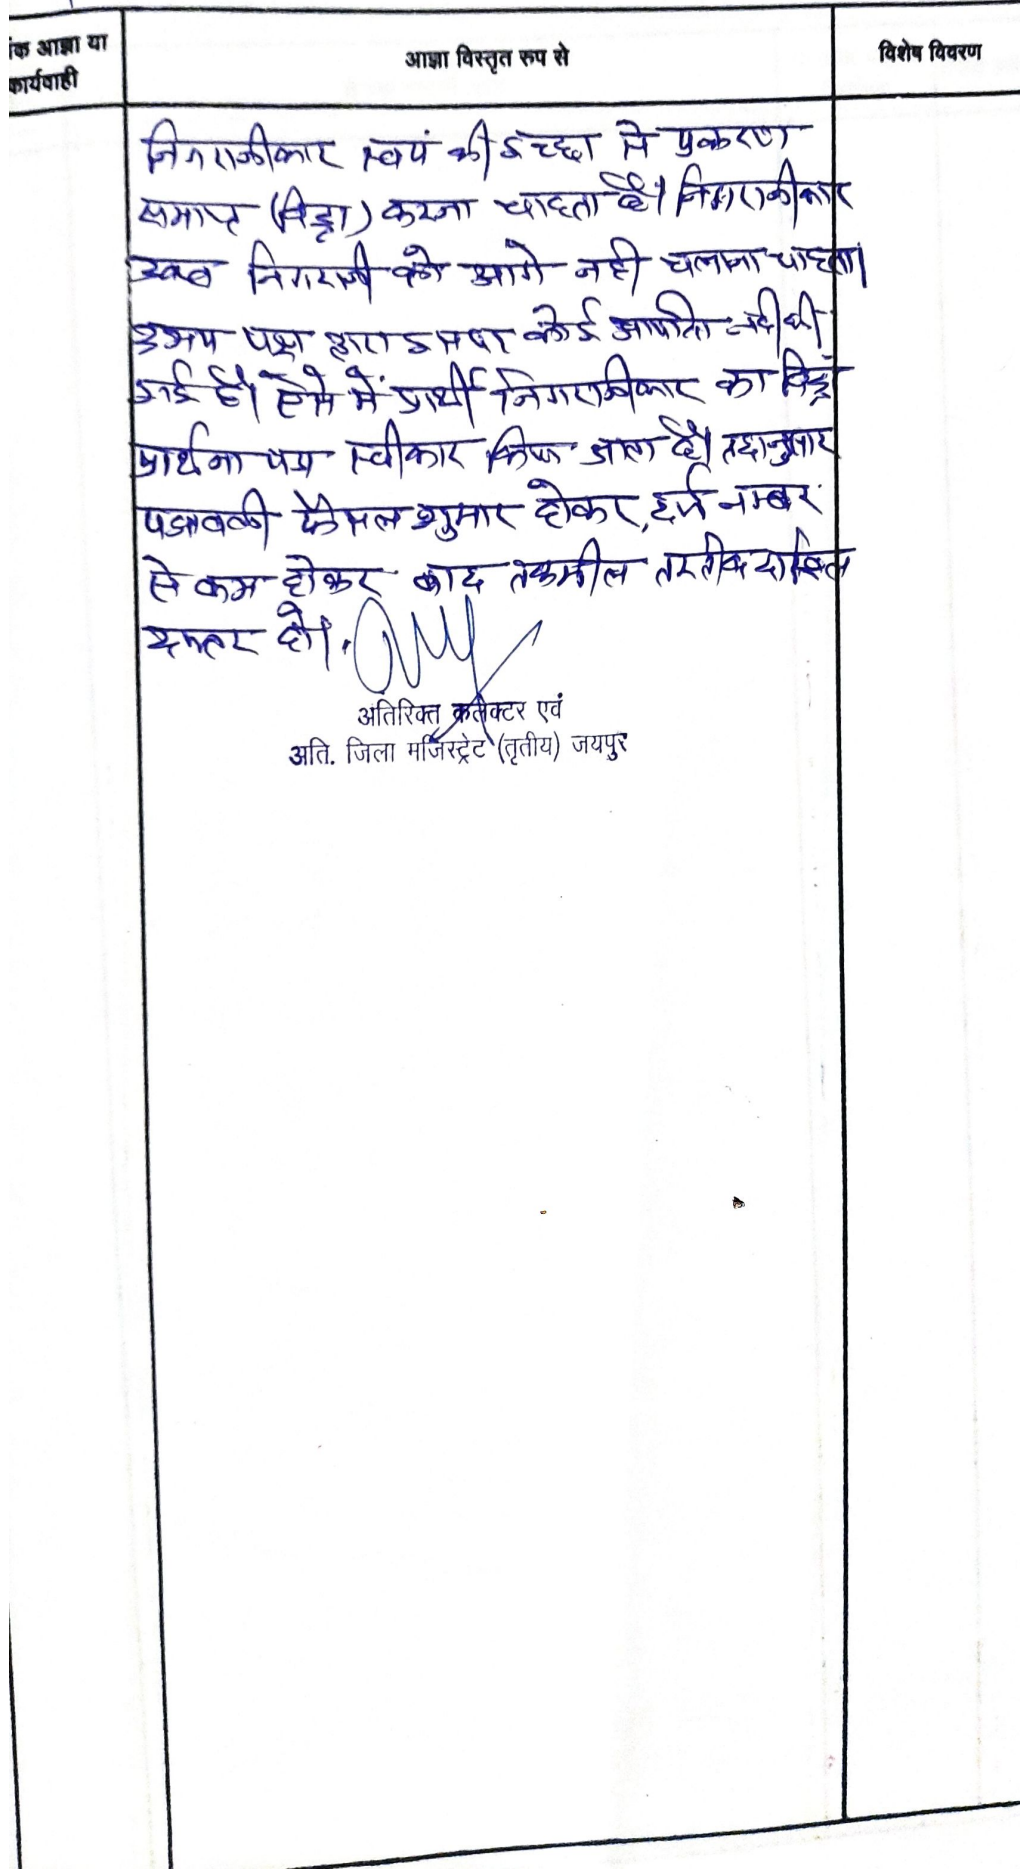 ंक आज्ञा या
कार्यवाही
आज्ञा विस्तृत रूप से
विशेष विवरण
निगरानीकार स्वयं की इच्छा से प्रकरण
समाप्त (विड्रा) करना चाहता है। निगरानीकार
उक्त निगरानी को आगे नही चलाना चाहता।
उभय पक्ष द्वारा इसपर कोई आपत्ति नही की
गई है। ऐसे में प्रार्थी निगरानीकार का विड्रॉ
प्रार्थना पत्र स्वीकार किया जाता है। तद्नुसार
पत्रावली फैसल शुमार होकर, दर्ज नम्बर
से कम होकर बाद तकमील तरतीब दाखिल
दफ्तर हो।
अतिरिक्त कलेक्टर एवं
अति. जिला मजिस्ट्रेट (तृतीय) जयपुर